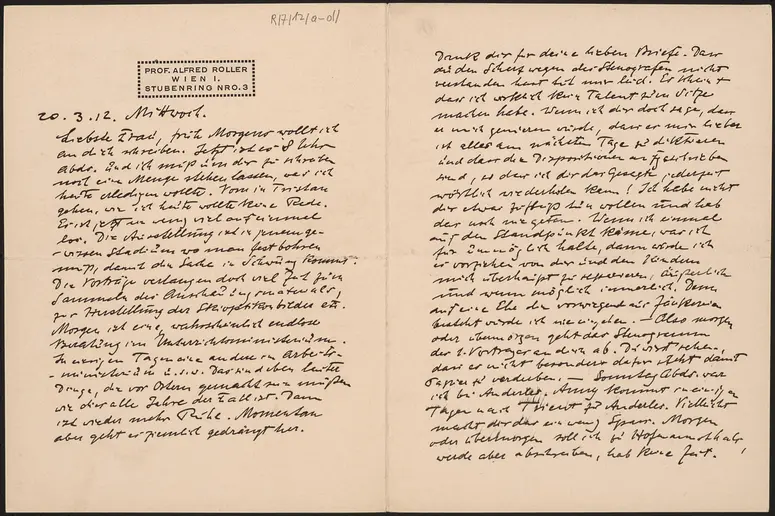 R/7/12/a-d//
PROF. ALFRED ROLLER
WIEN I.
STUBENRING NRO. 3
20. 3. 12. Mittwoch.
Liebste Frau, früh Morgens wollt ich
an dich schreiben. Jetzt ist es 8 Uhr
Abds. Und ich muß um dir zu schreiben
noch eine Menge stehen lassen, was ich
heute erledigen wollte. Vom in Tristan
gehen, wie ich heute wollte keine Rede.
Es ist jetzt ein wenig viel auf einmal
los. Die Ausstellung ist in jenem ge-
wissen Stadium wo man fest bohren
muß, damit die Sache in Schwung kommt.
Die Vorträge verlangen doch viel Zeit zum
Sammeln des Anschauungsmaterials,
zur Herstellung der Skioptikonbilder etc.
Morgen ist eine, wahrscheinlich endlose
Beratung im Unterrichtsministerium.
In wenigen Tagen eine andere im Arbeits-
ministerium u.s.w. Das sind eben lauter
Dinge, die vor Ostern gemacht sein müssen
wie dies alle Jahre der Fall ist. Dann
ist wieder mehr Ruhe. Momentan
aber geht es ziemlich gedrängt her.
Dank dir für deine lieben Briefe. Dass
du den Scherz wegen des Stenografen nicht
verstanden hast tut mir leid. Es scheint
dass ich wirklich kein Talent zum Witze
machen habe. Wenn ich dir doch sage, dass
es mich genieren würde, dass es mir lieber
ist alles am nächsten Tage zu diktieren
und dass die Dispositionen aufgeschrieben
sind, so dass ich dir das Gesagte jederzeit
wörtlich wiederholen kann! Ich habe nicht
dir etwas zufleiß tun wollen und hab
das auch nie getan. Wenn ich einmal
auf den Standpunkt käme, was ich
für unmöglich halte, dann würde ich
es vorziehen von dir und den Kindern
mich überhaupt zu separieren, äußerlich
und wenn möglich innerlich. Denn
auf eine Ehe die vorwiegend aus Zänkereien
besteht würde ich nie eingehen. — Also morgen
oder übermorgen geht das Stenogramm
des 2. Vortrages an dich ab. Du wirst sehen,
dass es nicht besonders dafür steht damit
Papier zu verderben. — Sonntag Abds. war
ich bei Anderles. Anny kommt in einigen
Tagen nach Triest zu Anderles. Vielleicht
macht dir das ein wenig Spass. Morgen
oder übermorgen soll ich zu Hofmannsthals
werde aber abschreiben, hab keine Zeit.